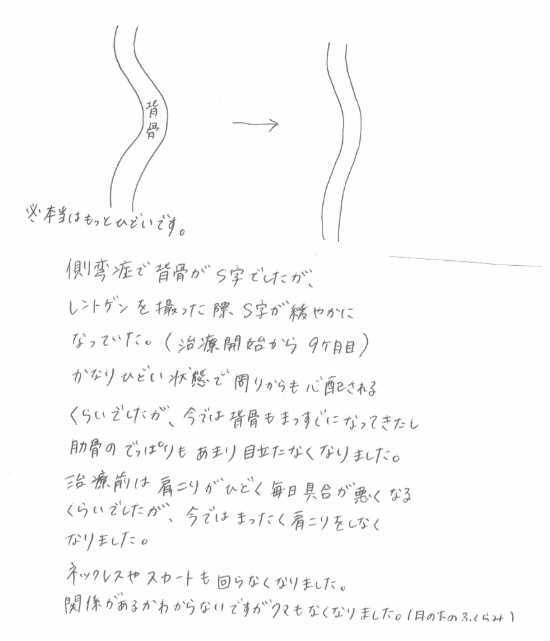 背骨
※本当はもっとひどいです。
側弯症で背骨がS字でしたが、
レントゲンを撮った際、S字が緩やかに
なっていた。(治療開始から9ヶ月目)
かなりひどい状態で周りからも心配される
くらいでしたが、今では背骨もまっすぐになってきたし
肋骨のでっぱりもあまり目立たなくなりました。
治療前は肩こりがひどく毎日具合が悪くなる
くらいでしたが、今ではまったく肩こりをしなく
なりました。
ネックレスやスカートも回らなくなりました。
関係があるかわからないですがクマもなくなりました。(目の下のふくらみ)